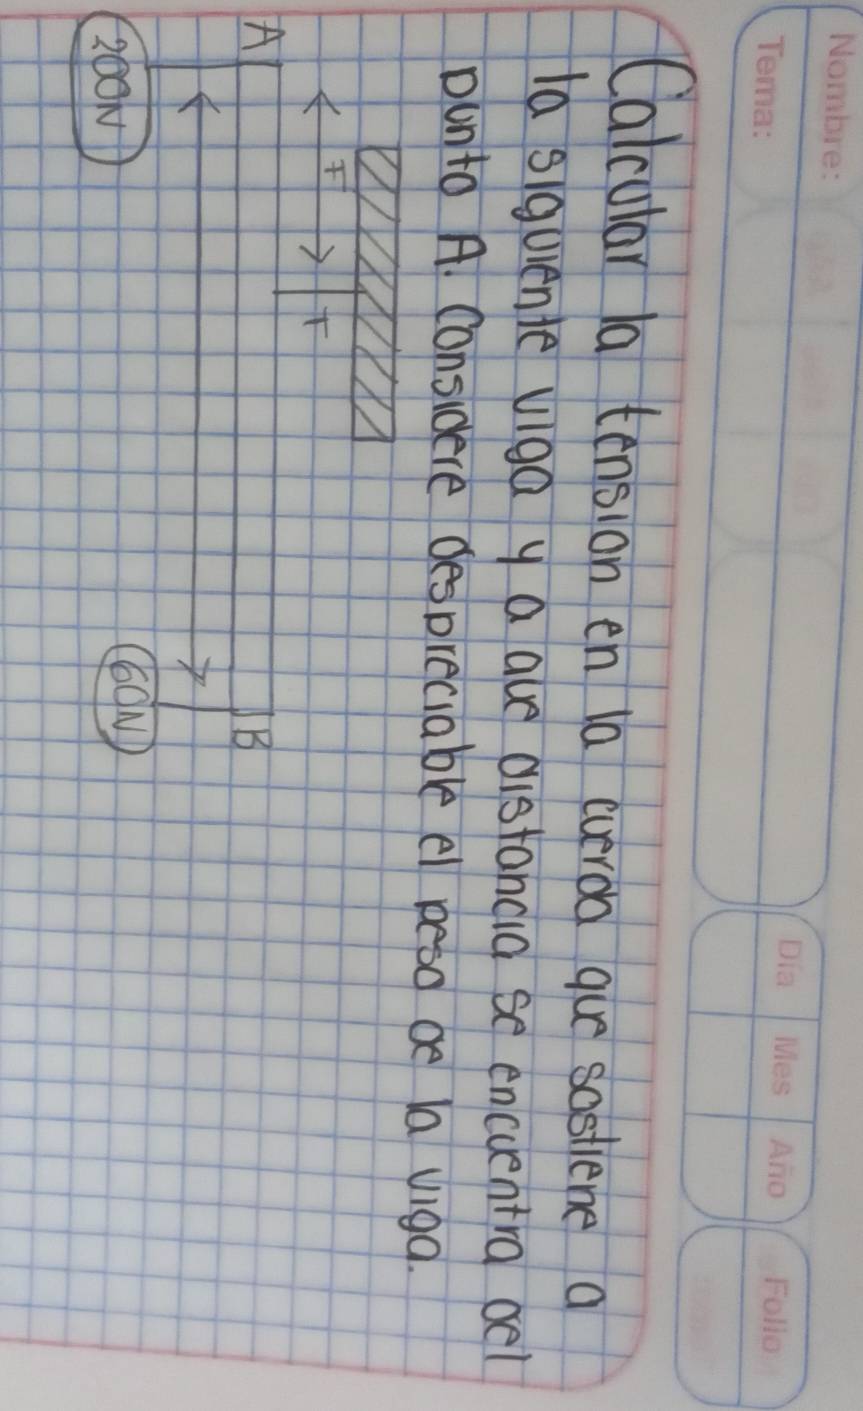 Nombre:
Tema:
Día Mes Año Folio
Calcular la tension en la cuerda que sostiene a
la siguiente viga y a que distancia se encuentra del
punto A. Considere despreciable el peso de la viga.
F T
A B
200N 60N